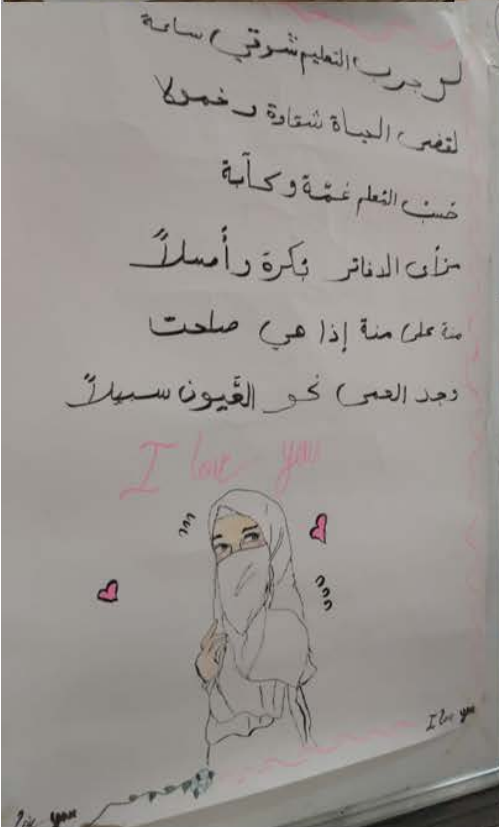 لو جرب التعليم شوقي ساعة
لقضى الحياة شقاوة وخمولا
حسب المعلم غمّة وكآبة
مرأى الدفاتر بكرة وأصيلاً
مئة على مئة إذا هي صلحت
وجد العمى نحو العيون سبيلاً
I love you
I love you
you